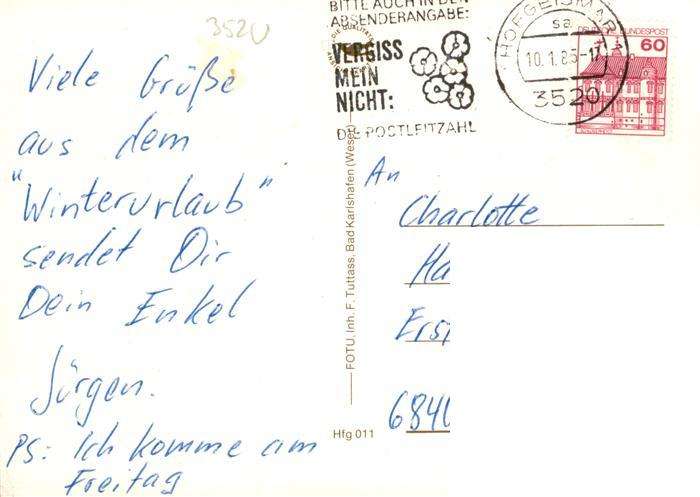 3520
Viele Grüße
aus dem
"Winterurlaub"
sendet Dir
Dein Enkel
Jürgen.
PS: Ich komme am
Freitag
BITTE AUCH IN DER
ABSENDERANGABE:
VERGISS
MEIN
NICHT:
DIE POSTLEITZAHL
HOFGEISMAR
sa
10.1.85-17
3520
DEUTSCHE BUNDESPOST
60
FOTU, Inh. F. Tuttass, Bad Karlshafen (Weser)
Hfg 011
An
Charlotte
Ha
6840